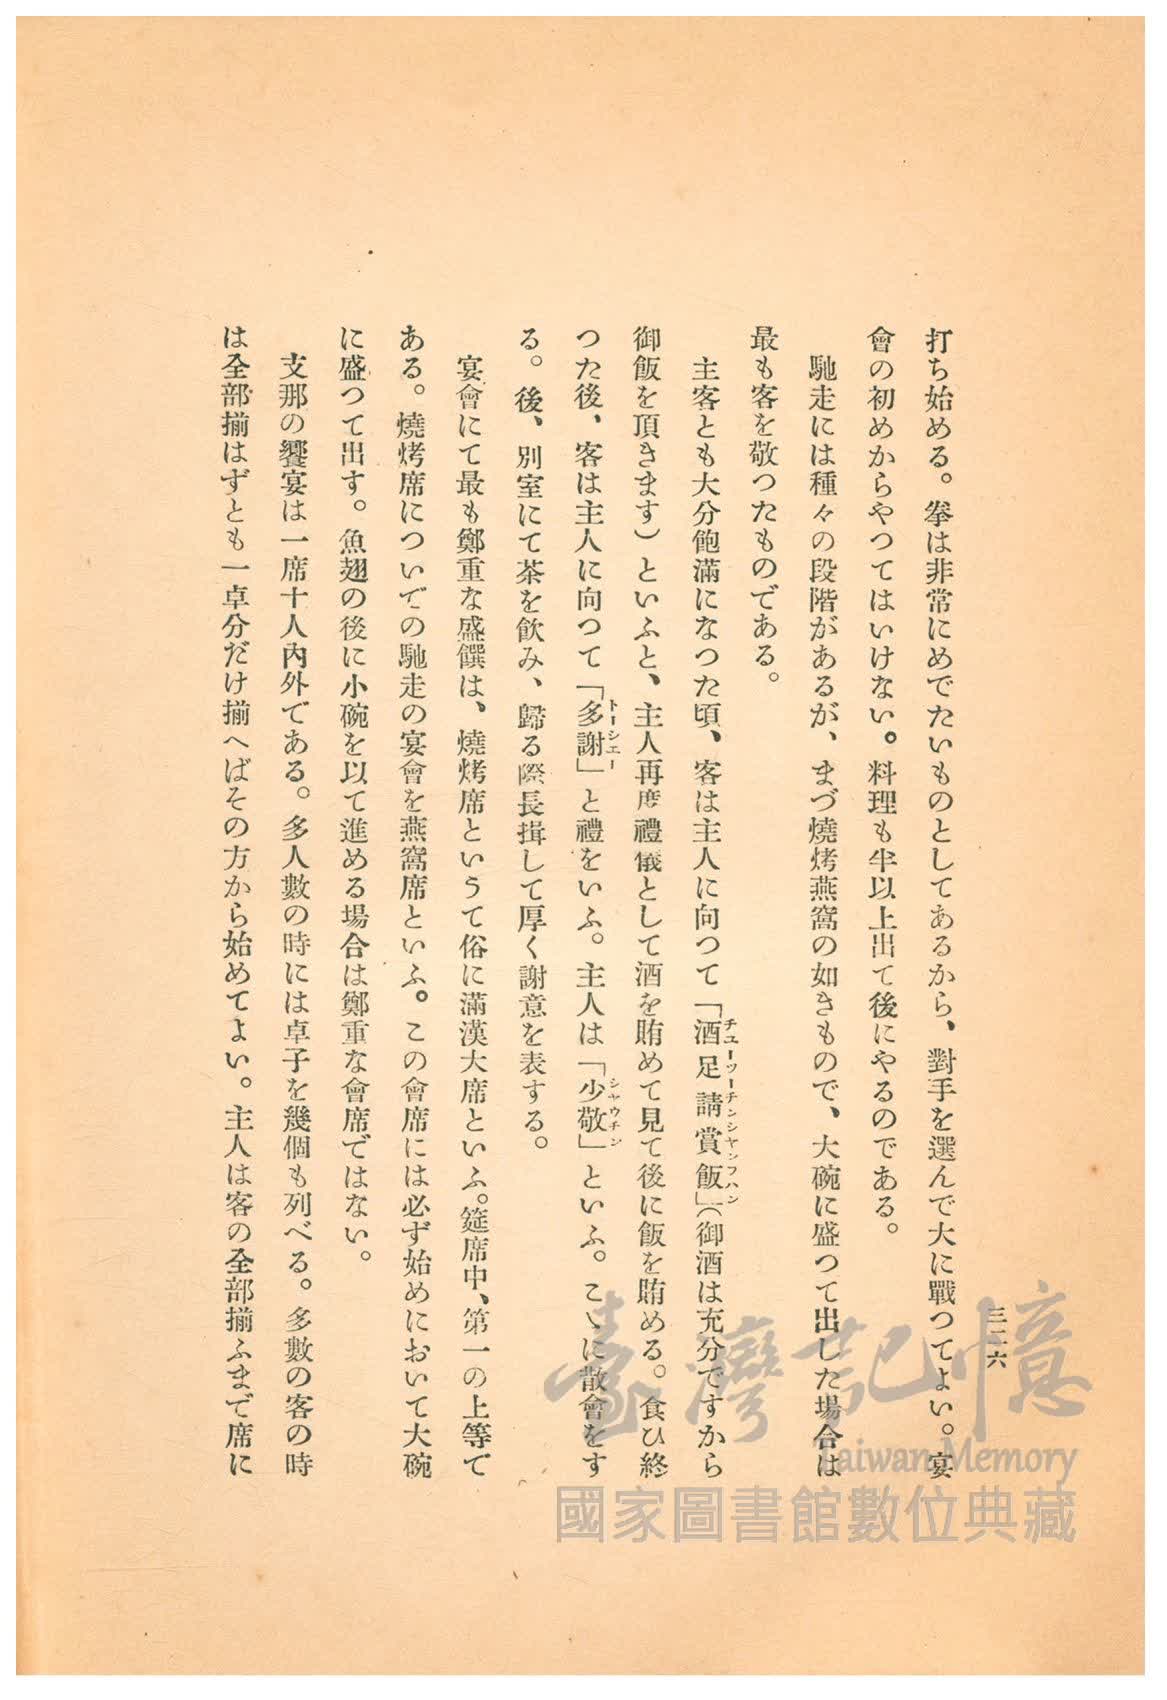 三二六
打ち始める。拳は非常にめでたいものとしてあるから、對手を選んで大に戰つてよい。宴
會の初めからやつてはいけない。料理も半以上出て後にやるのである。
馳走には種々の段階があるが、まづ燒烤燕窩の如きもので、大碗に盛つて出した場合は
最も客を敬つたものである。
主客とも大分飽滿になつた頃、客は主人に向つて「酒足請賞飯」（御酒は充分ですから
チユーツーチンシヤンフハン
御飯を頂きます）といふと、主人再度禮儀として酒を賄めて見て後に飯を賄める。食ひ終
つた後、客は主人に向つて「多謝」と禮をいふ。主人は「少敬」といふ。こゝに散會をす
トーシエー
シヤウチン
る。後、別室にて茶を飲み、歸る際長揖して厚く謝意を表する。
宴會にて最も鄭重な盛饌は、燒烤席というて俗に滿漢大席といふ。筵席中、第一の上等で
ある。燒烤席についでの馳走の宴會を燕窩席といふ。この會席には必ず始めにおいて大碗
に盛つて出す。魚翅の後に小碗を以て進める場合は鄭重な會席ではない。
支那の饗宴は一席十人內外である。多人數の時には卓子を幾個も列べる。多數の客の時
は全部揃はずとも一卓分だけ揃へばその方から始めてよい。主人は客の全部揃ふまで席に
臺灣記憶
Taiwan Memory
國家圖書館數位典藏